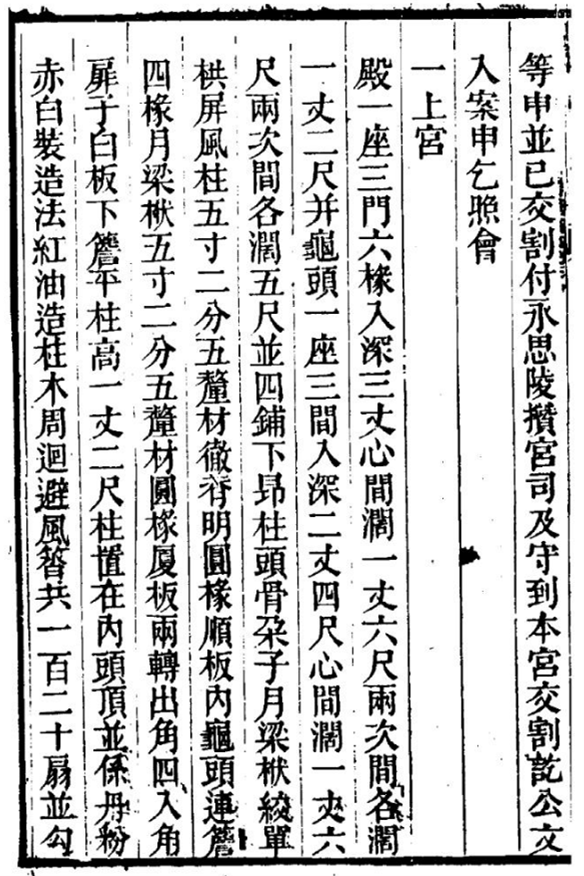 等申並已交割付永思陵攢宮司及守到本宮交割訖公文
入案申乞照會
一上宮
殿一座三門六椽入深三丈心間濶一丈六尺兩次間各濶
一丈二尺并龜頭一座三間入深二丈四尺心間濶一丈六
尺兩次間各濶五尺並四鋪下昻柱頭骨朶子月梁栿絞單
栱屏風柱五寸二分五釐材徹脊明圓椽順板內龜頭連簷
四椽月梁栿五寸二分五釐材圓椽厦板兩轉出角四入角
扉子白板下簷平柱高一丈二尺柱置在內頭頂並係丹粉
赤白裝造法紅油造柱木周迴避風篸共一百二十扇並勾